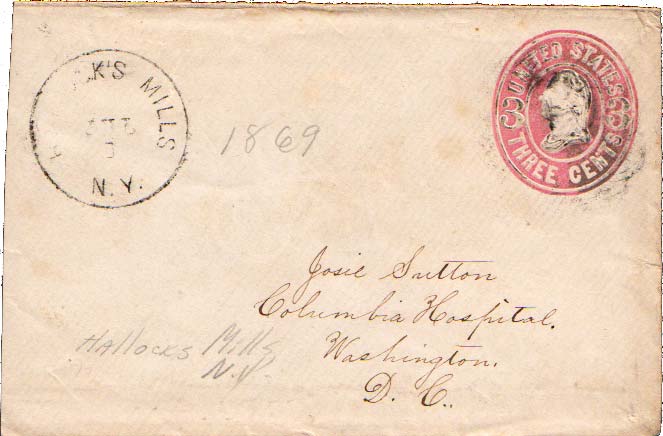 K'S MILLS
N.Y.
1869
UNITED STATES
3 3
THREE CENTS
Josie Sutton
Columbia Hospital.
Washington.
D. C.
Hallocks Mills
N.Y.